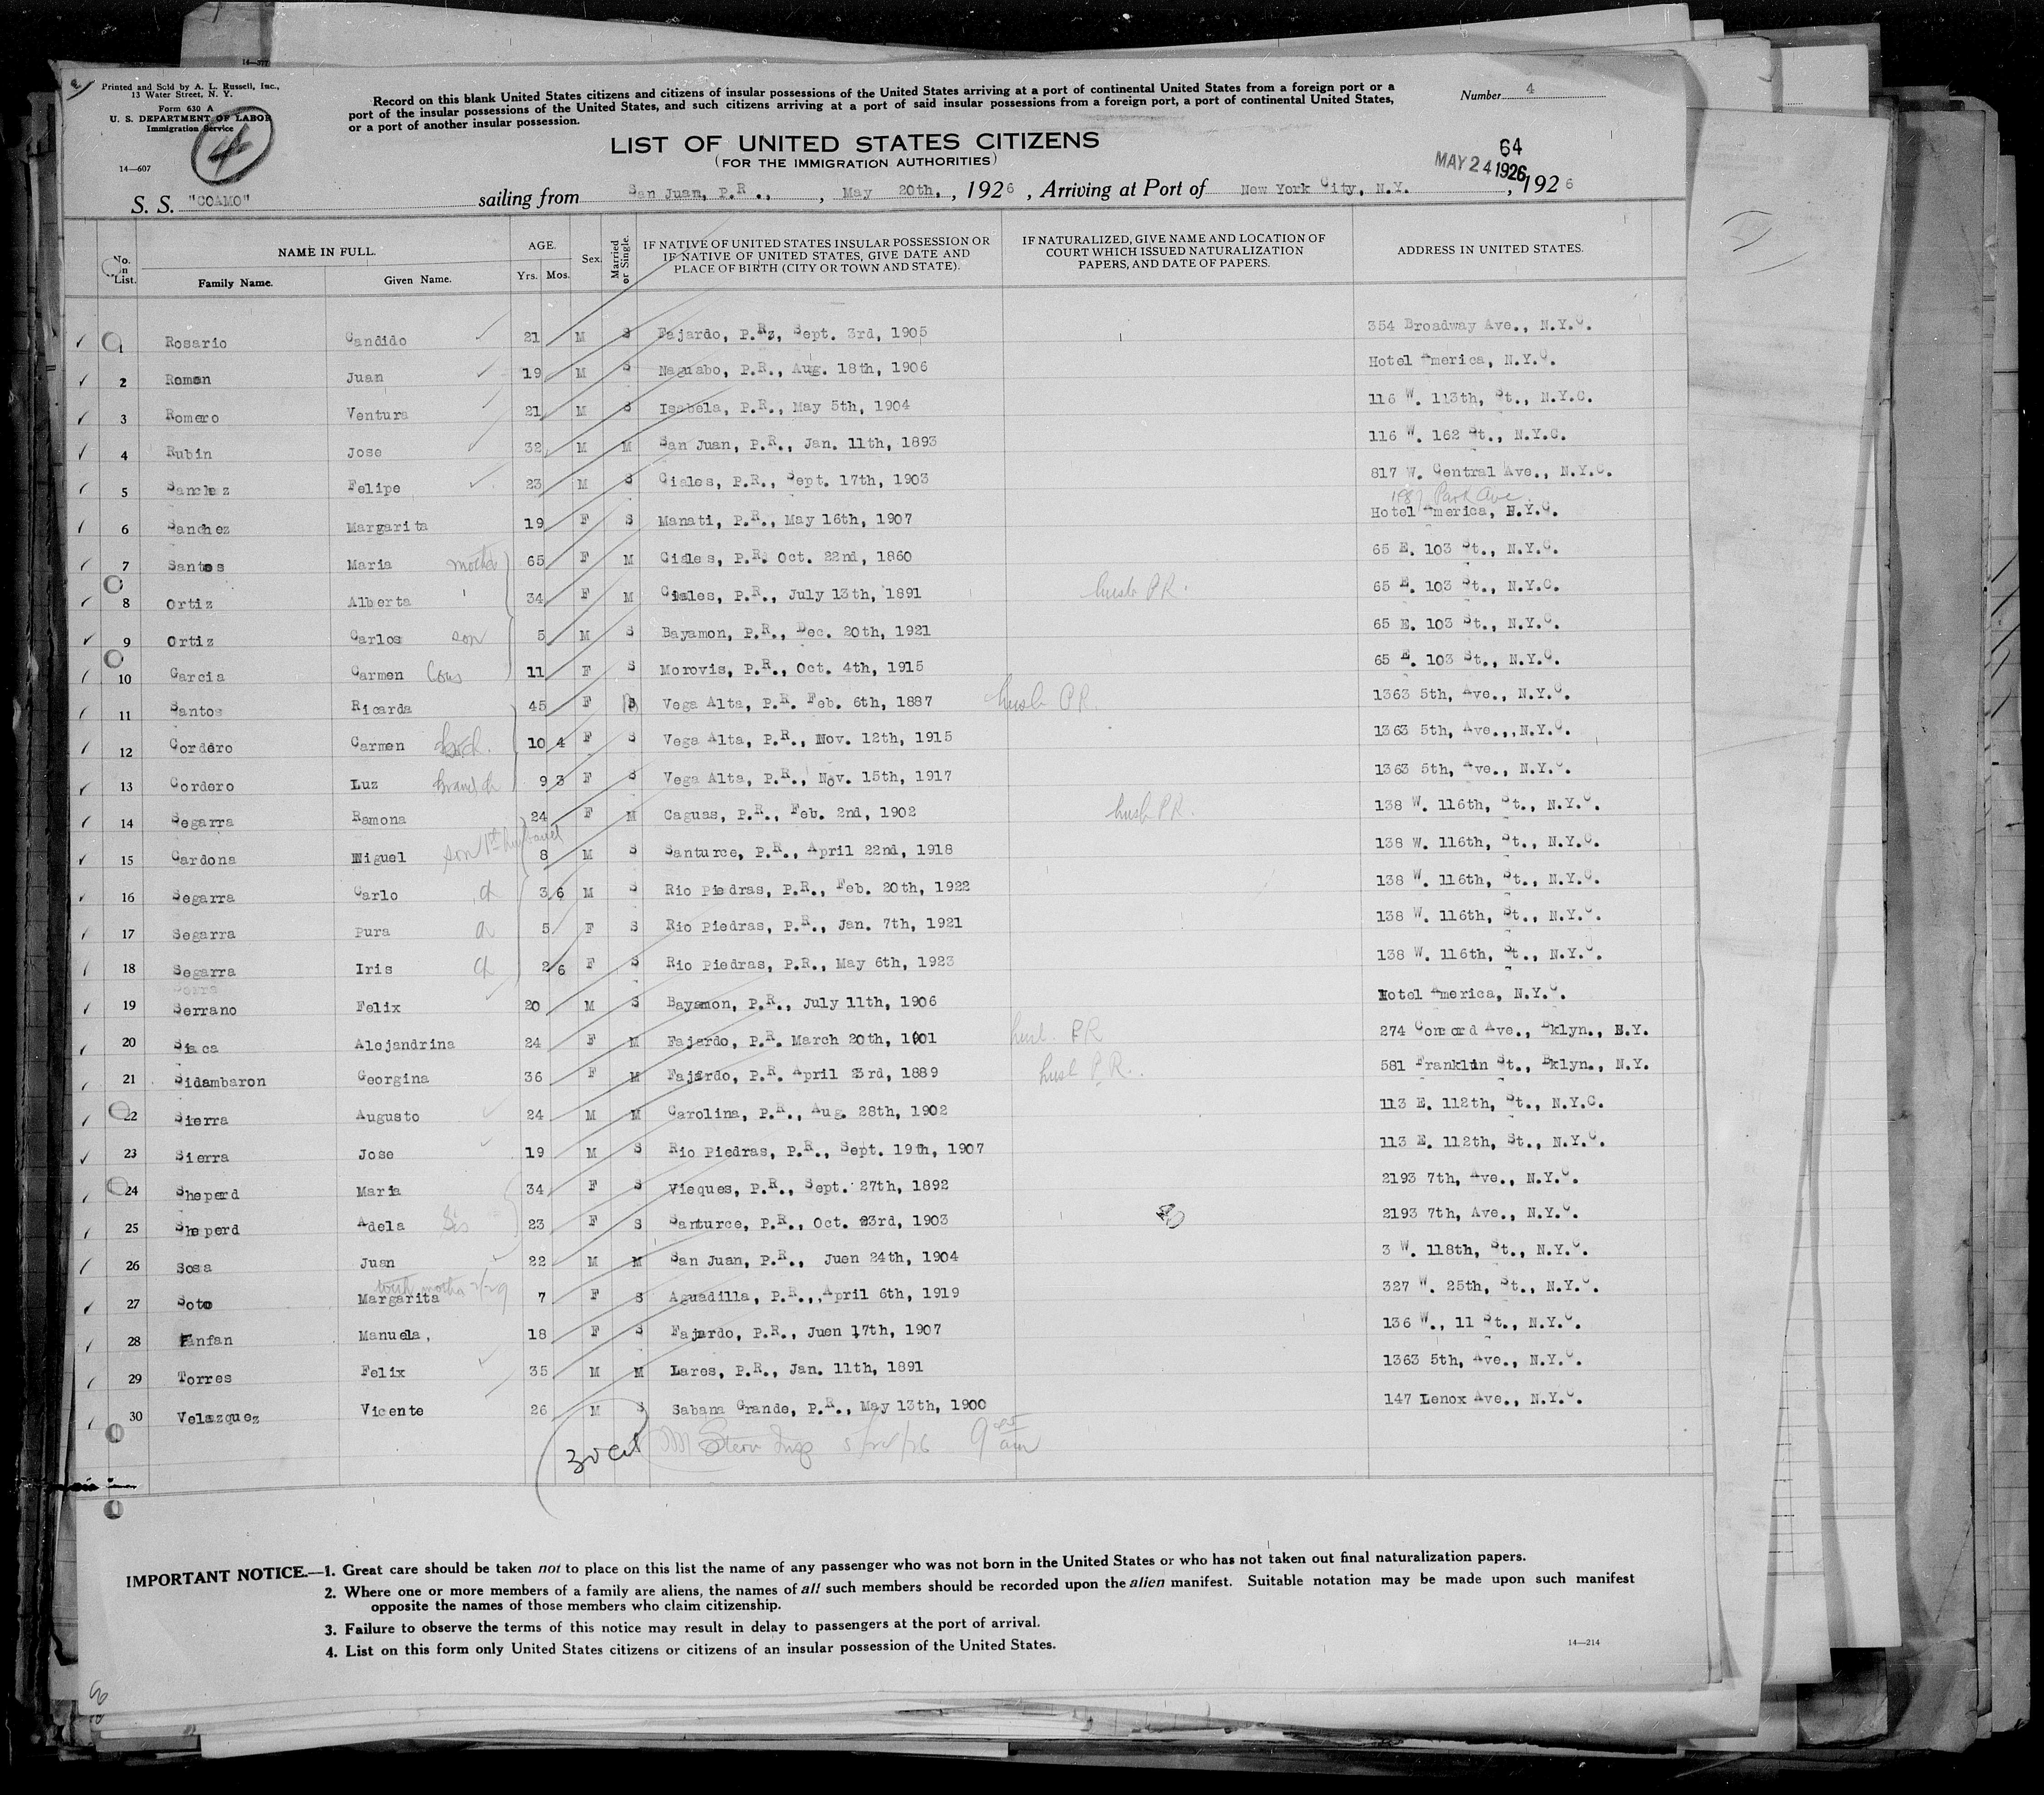 14—377
Printed and Sold by A. L. Russell, Inc.,
13 Water Street, N. Y.
Form 630 A
U. S. DEPARTMENT OF LABOR
Immigration Service
4
14—607
Record on this blank United States citizens and citizens of insular possessions of the United States arriving at a port of continental United States from a foreign port or a
port of the insular possessions of the United States, and such citizens arriving at a port of said insular possessions from a foreign port, a port of continental United States,
or a port of another insular possession.
Number 4
LIST OF UNITED STATES CITIZENS
(FOR THE IMMIGRATION AUTHORITIES)
64
MAY 24 1926
S. S. "COAMO" sailing from San Juan, P.R., , May 20th, , 1926 , Arriving at Port of New York City, N.Y. , 1926
No. in List. NAME IN FULL. Family Name. Given Name. AGE. Yrs. Mos. Sex. Married or Single. IF NATIVE OF UNITED STATES INSULAR POSSESSION OR IF NATIVE OF UNITED STATES, GIVE DATE AND PLACE OF BIRTH (CITY OR TOWN AND STATE). IF NATURALIZED, GIVE NAME AND LOCATION OF COURT WHICH ISSUED NATURALIZATION PAPERS, AND DATE OF PAPERS. ADDRESS IN UNITED STATES.
1 Rosario Candido 21 M S Fajardo, P.R., Sept. 3rd, 1905 354 Broadway Ave., N.Y.C.
2 Roman Juan 19 M S Naguabo, P.R., Aug. 18th, 1906 Hotel America, N.Y.C.
3 Romero Ventura 21 M S Isabela, P.R., May 5th, 1904 116 W. 113th, St., N.Y.C.
4 Rubin Jose 32 M M San Juan, P.R., Jan. 11th, 1893 116 W. 162 St., N.Y.C.
5 Sanchez Felipe 23 M S Ciales, P.R., Sept. 17th, 1903 817 W. Central Ave., N.Y.C.
Park Ave
6 Sanchez Margarita 19 F S Manati, P.R., May 16th, 1907 Hotel America, N.Y.C.
7 Santos Maria mother 65 F M Ciales, P.R. Oct. 22nd, 1860 65 E. 103 St., N.Y.C.
8 Ortiz Alberta 34 F M Ciales, P.R., July 13th, 1891 husb P.R. 65 E. 103 St., N.Y.C.
9 Ortiz Carlos son 5 M S Bayamon, P.R., Dec. 20th, 1921 65 E. 103 St., N.Y.C.
10 Garcia Carmen Cous 11 F S Morovis, P.R., Oct. 4th, 1915 65 E. 103 St., N.Y.C.
11 Santos Ricarda 45 F Vega Alta, P.R. Feb. 6th, 1887 husb P.R. 1363 5th, Ave., N.Y.C.
12 Cordero Carmen 10 4 F S Vega Alta, P.R., Nov. 12th, 1915 1363 5th, Ave.,,N.Y.C.
13 Cordero Luz 9 3 F S Vega Alta, P.R., Nov. 15th, 1917 1363 5th, Ave., N.Y.C.
14 Segarra Ramona 24 F M Caguas, P.R., Feb. 2nd, 1902 husb P.R. 138 W. 116th, St., N.Y.C.
15 Cardona Miguel son 1st husband 8 M S Santurce, P.R., April 22nd, 1918 138 W. 116th, St., N.Y.C.
16 Segarra Carlo 3 6 M S Rio Piedras, P.R., Feb. 20th, 1922 138 W. 116th, St., N.Y.C.
17 Segarra Pura 5 F S Rio Piedras, P.R., Jan. 7th, 1921 138 W. 116th, St., N.Y.C.
18 Segarra Iris 2 6 F S Rio Piedras, P.R., May 6th, 1923 138 W. 116th, St., N.Y.C.
19 Serrano Felix 20 M S Bayamon, P.R., July 11th, 1906 Hotel America, N.Y.C.
20 Siaca Alejandrina 24 F M Fajardo, P.R. March 20th, 1901 husb. P.R 274 Concord Ave., Bklyn., N.Y.
21 Sidambaron Georgina 36 F M Fajardo, P.R. April 23rd, 1889 husb P.R. 581 Franklin St., Bklyn., N.Y.
22 Sierra Augusto 24 M M Carolina, P.R., Aug. 28th, 1902 113 E. 112th, St., N.Y.C.
23 Sierra Jose 19 M S Rio Piedras, P.R., Sept. 19th, 1907 113 E. 112th, St., N.Y.C.
24 Sheperd Maria 34 F S Vieques, P.R., Sept. 27th, 1892 2193 7th, Ave., N.Y.C.
25 Sheperd Adela Sis 23 F S Santurce, P.R., Oct. 23rd, 1903 2193 7th, Ave., N.Y.C.
26 Sosa Juan 22 M M San Juan, P.R., Juen 24th, 1904 3 W. 118th, St., N.Y.C.
with mother
27 Soto Margarita 7 F S Aguadilla, P.R.,,April 6th, 1919 327 W. 25th, St., N.Y.C.
28 Fanfan Manuela, 18 F S Fajardo, P.R., Juen 17th, 1907 136 W., 11 St., N.Y.C.
29 Torres Felix 35 M M Lares, P.R., Jan. 11th, 1891 1363 5th, Ave., N.Y.C.
30 Velazquez Vicente 26 M S Sabana Grande, P.R., May 13th, 1900 147 Lenox Ave., N.Y.C.
30 cit M Stern Insp 5/24/26 9 am
IMPORTANT NOTICE.—1. Great care should be taken not to place on this list the name of any passenger who was not born in the United States or who has not taken out final naturalization papers.
2. Where one or more members of a family are aliens, the names of all such members should be recorded upon the alien manifest. Suitable notation may be made upon such manifest
opposite the names of those members who claim citizenship.
3. Failure to observe the terms of this notice may result in delay to passengers at the port of arrival.
4. List on this form only United States citizens or citizens of an insular possession of the United States.
14—214